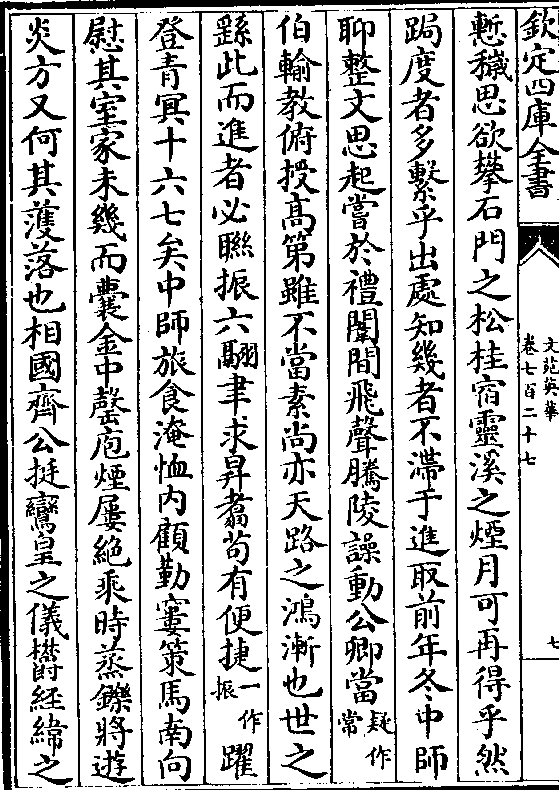 欽定四庫全書
文苑英華
卷七百二十七
七
慙穢思欲攀石門之松桂宿靈溪之煙月可再得乎然
跼度者多繫乎出處知幾者不滯于進取前年冬中師
聊整文思起嘗於禮闈間飛聲騰陵譟動公卿當疑作常
伯輸教俯授高第雖不當素尚亦天路之鴻漸也世之
繇此而進者必聮振六翮聿求昇翥苟有便捷一作振躍
登青冥十六七矣中師旅食淹恤内顧勤窶策馬南向
慰其室家未幾而囊金中罄庖煙屢絶乘時蒸鑠將遊
炎方又何其濩落也相國齊公挺鸞皇之儀欝經緯之